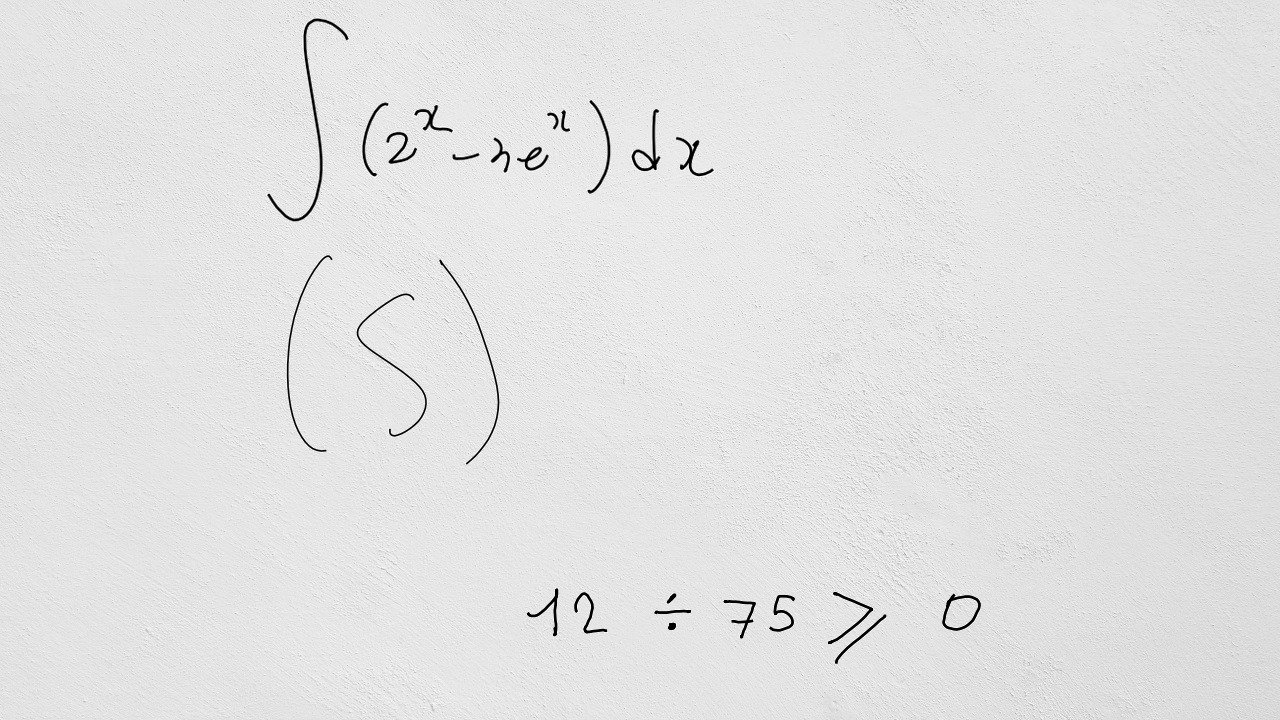 ∫ (2^x - ne^x) dx
(S)
12 ÷ 75 ⩾ 0